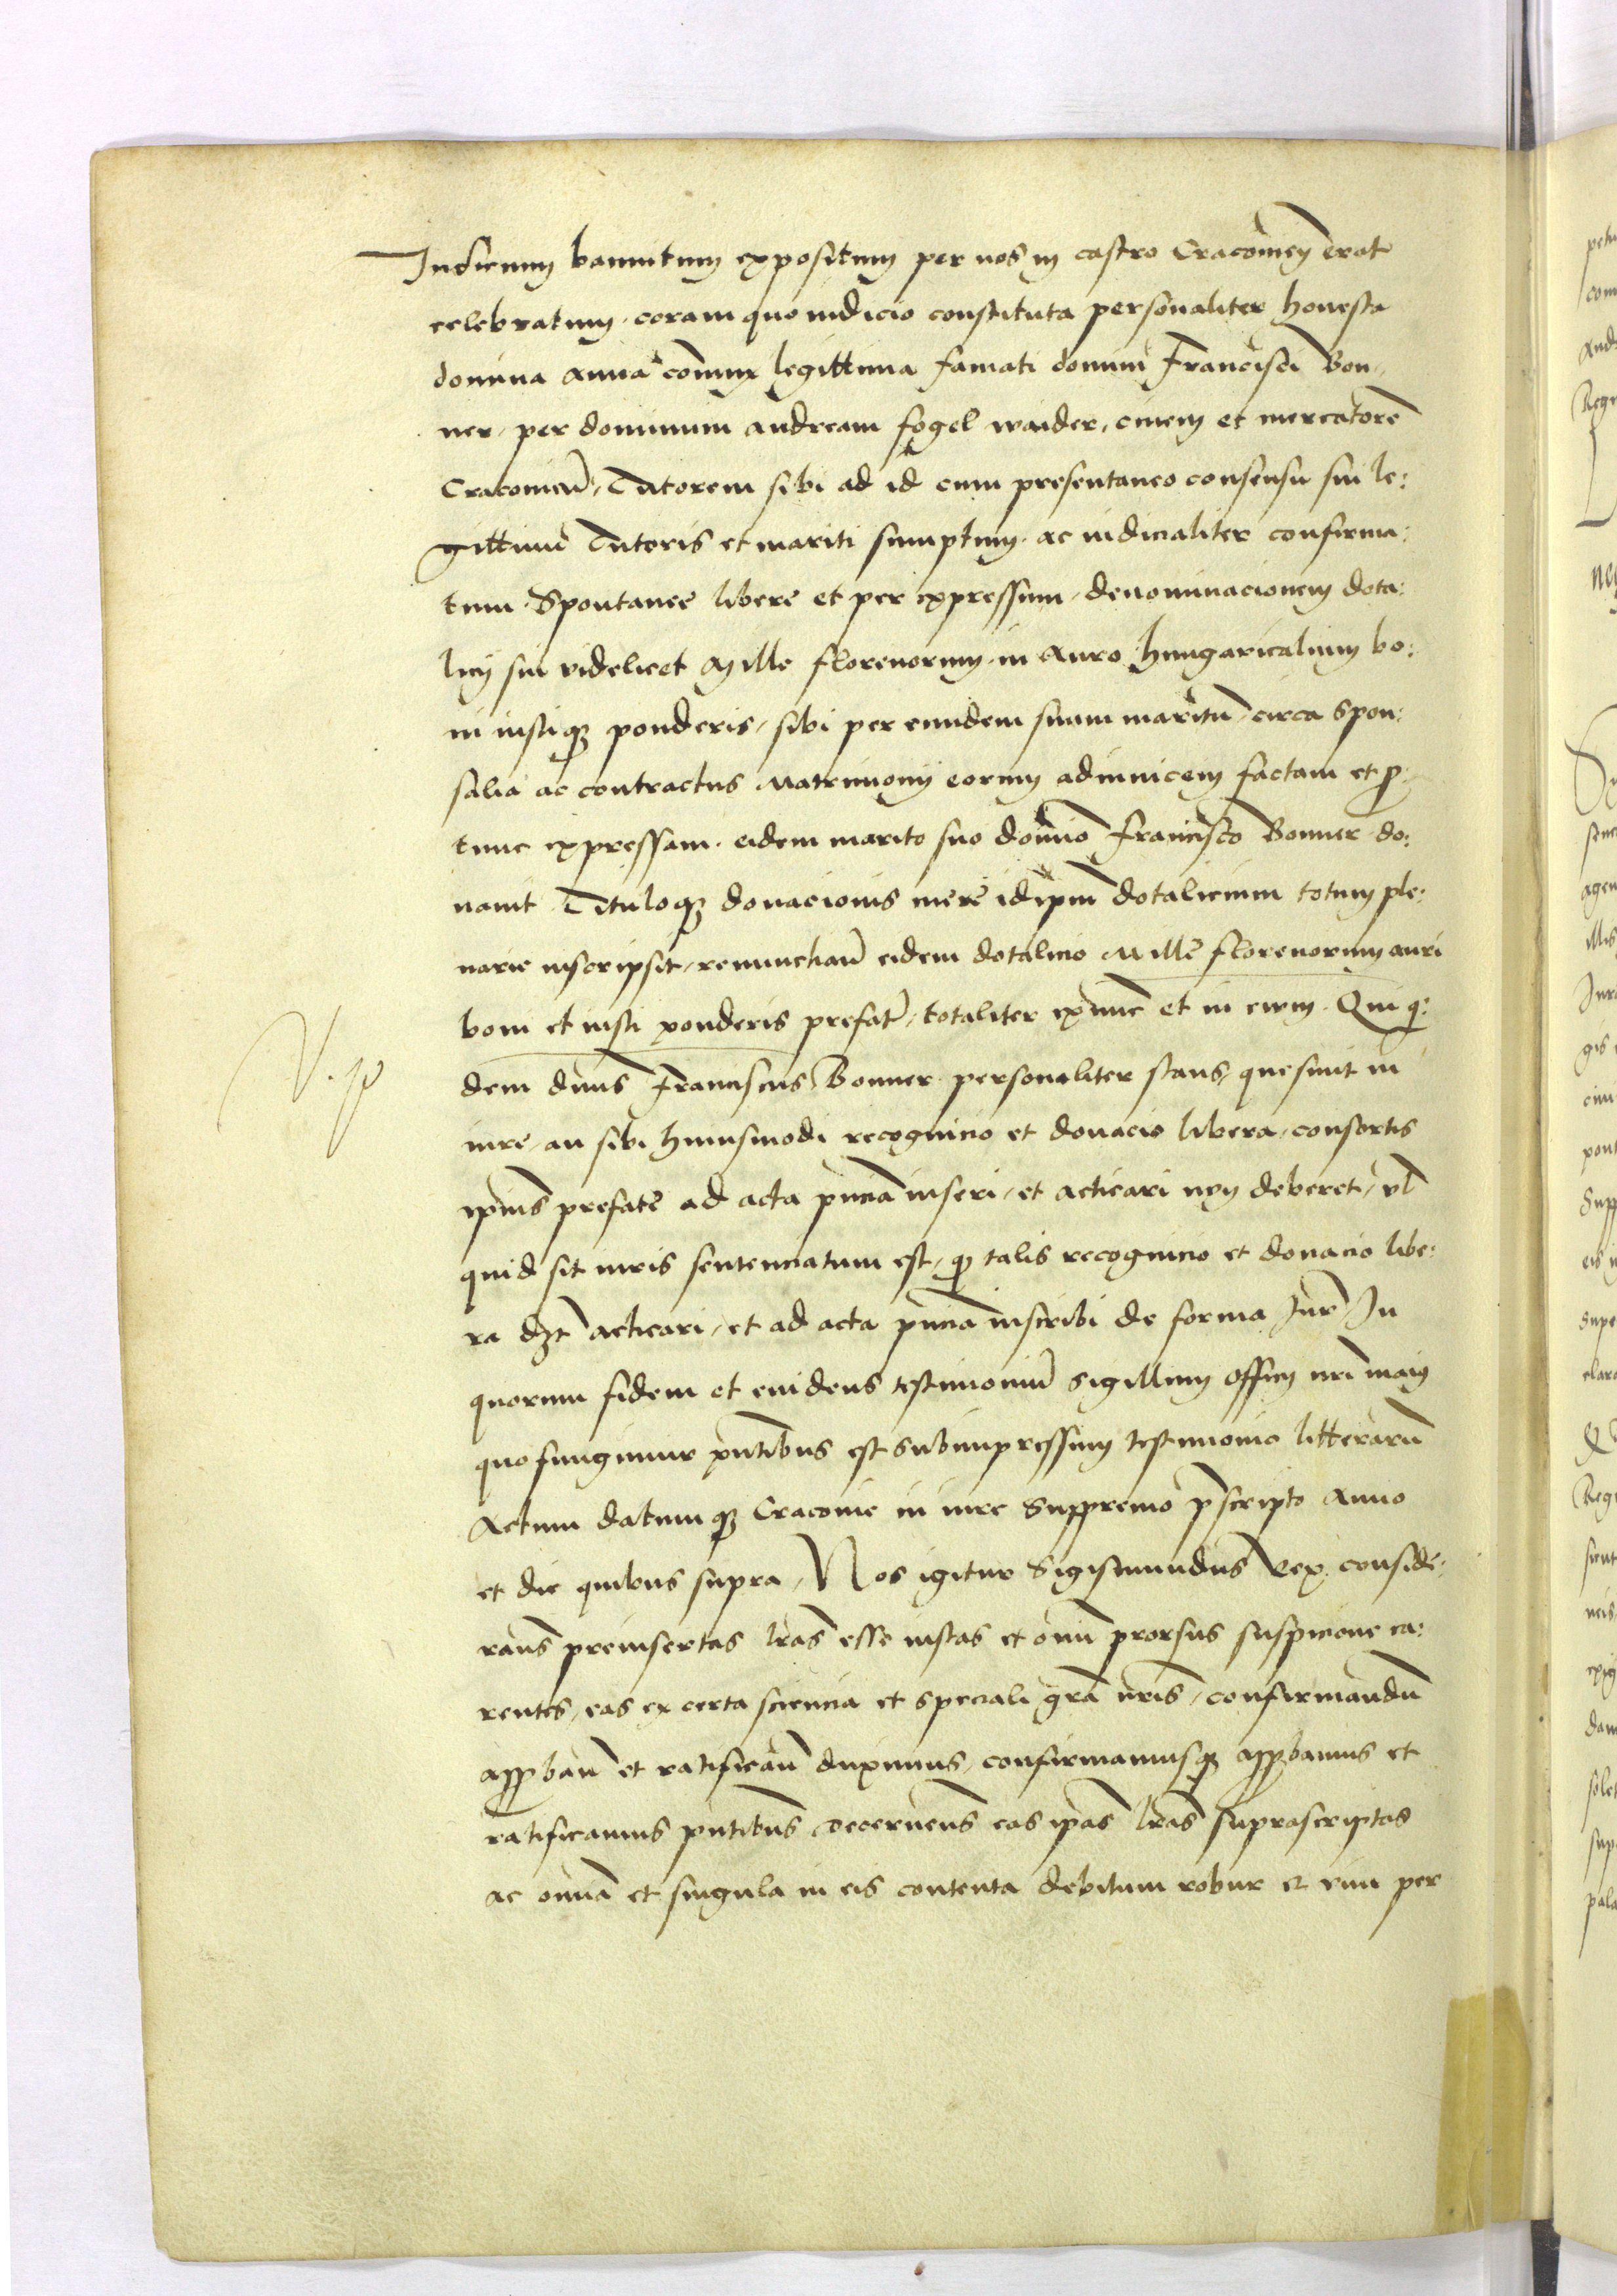 Iudicium bannitum expositum per nos in castro Cracovien̄ erat
celebratum. coram quo iudicio constituta personaliter honesta
domina anna coniunx legittima famati domini Francisci Bon,
ner, per dominum andream fogel waider, civem et mercatorē
Cracovien̄, Tutorem sibi ad id cum presentaneo consensu sui le:
gittimi Tutoris et mariti sumptum. ac iudicialiter confirma:
tum. Spontanee libere et per expressum, denominacionem dota:
licij sui videlicet Mille florenorum. in Auro hungaricalium bo:
ni iustiqʒ ponderis, sibi per eundem suum maritū, circa spon:
salia ac contractus Matrimonij eorum adinvicem factam et ꝑ
tunc expressam. eidem marito suo domīo Francisco Bonner do:
navit. Tituloqʒ donacionis mere id ipm̄ dotalicium totum ple:
narie inscripsit, renunctian̄ eidem dotalicio Mille florenorum auri
boni et iusti ponderis prefat̄, totaliter exnunc et in evum. Qui q:
dem dn̄us Franciscus Bonner personaliter stans, quesivit in
iure, an sibi huiusmodi recognicio et donacio libera, consortis
ip̄ius prefate ad acta pn̄cia inseri, et acticari non deberet, vl̄
quid sit iuris sentenciatum est, qꝫ talis recognicio et donacio libe:
ra dʒt acticari, et ad acta pn̄cia inscribi de forma Iur̄ In
quorum fidem et evidens testimoniū sigillum officij nr̄i maij
quo fungimur pn̄tibus est subimpressum testimonio litterarū
Actum datumqʒ Cracovie in iure suppremo p̄scripto Anno
et die quibus supra, Nos igitur Sigismundus Rex. conside:
rans preinsertas lr̄as esse iustas et om̄i prorsus suspicione ca:
rentes, eas ex certa sciencia et speciali gr̄a nr̄is, confirmandū
apꝓban̄ et ratifican̄ duximus, confirmamusqʒ apꝓbamus et
ratificamus pn̄tibus decernens eas ip̄as lr̄as suprascriptas
ac om̄ia et singula in eis contenta debitum robur et vim per